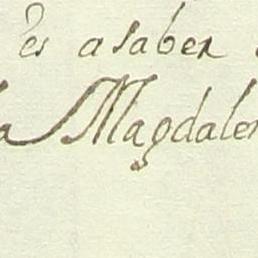 es a saber
la Magdalen